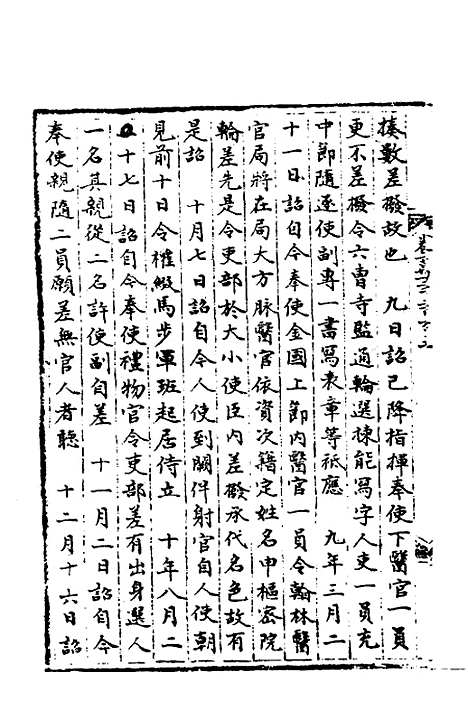 揍數差撥故也　九日詔已降指揮奉使下醫官一員
更不差撥令六曹寺監通輪選揀能寫字人吏一員充
中節隨逐使副專一書寫表章等祗應　九年三月二
十一日詔自今奉使金國上節内醫官一員令翰林醫
官局將在局大方脉醫官依資次籍定姓名申樞密院
輪差先是令吏部於大小使臣内差撥承代名色故有
是詔　十月七日詔自今人使到闕伴射官自人使朝
見前十日令權綴馬步軍班起居侍立　十年八月二
十七日詔自今奉使禮物官令吏部差有出身選人
一名其親從二名許使副自差　十一月二日詔自今
奉使親隨二員願差無官人者聽　十二月十六日詔